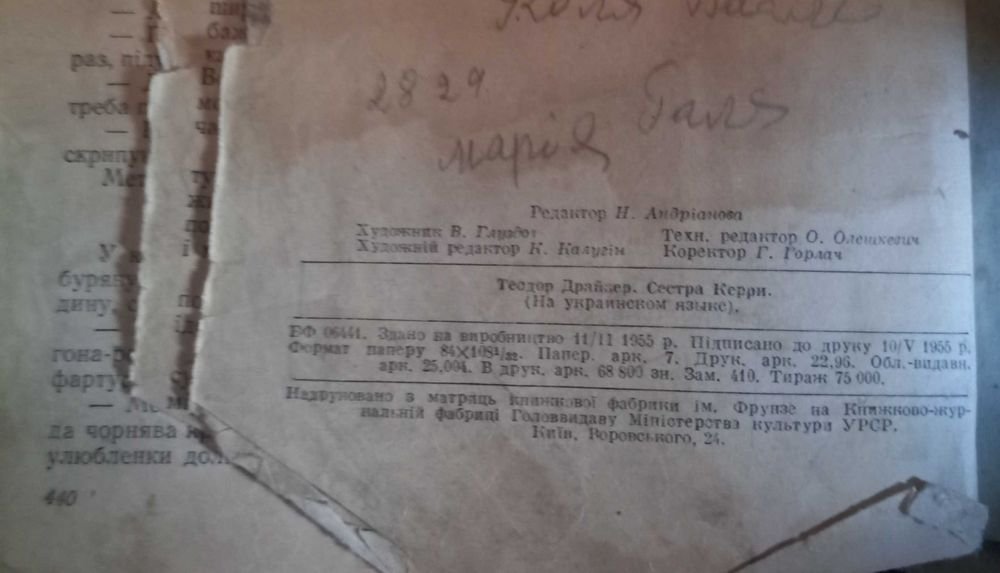 Коля
28 29
Галя
марія
раз,
треба
скрипу
У
буряну
дину,
гона-
фарту
да чорнява
улюбленки дол
440
Редактор Н. Андріанова
Художник В. Глуздов Техн. редактор О. Олешкевич
Художній редактор К. Калугін Коректор Г. Горлач
Теодор Драйзер. Сестра Керри.
(На украинском языке).
БФ 06441. Здано на виробництво 11/II 1955 р. Підписано до друку 10/V 1955 р.
Формат паперу 84×108¹/₃₂. Папер. арк. 7. Друк. арк. 22,96. Обл.-видавн.
арк. 25,004. В друк. арк. 68 800 зн. Зам. 410. Тираж 75 000.
Надруковано з матриць книжкової фабрики ім. Фрунзе на Книжково-жур-
нальній фабриці Головвидаву Міністерства культури УРСР.
Київ, Воровського, 24.